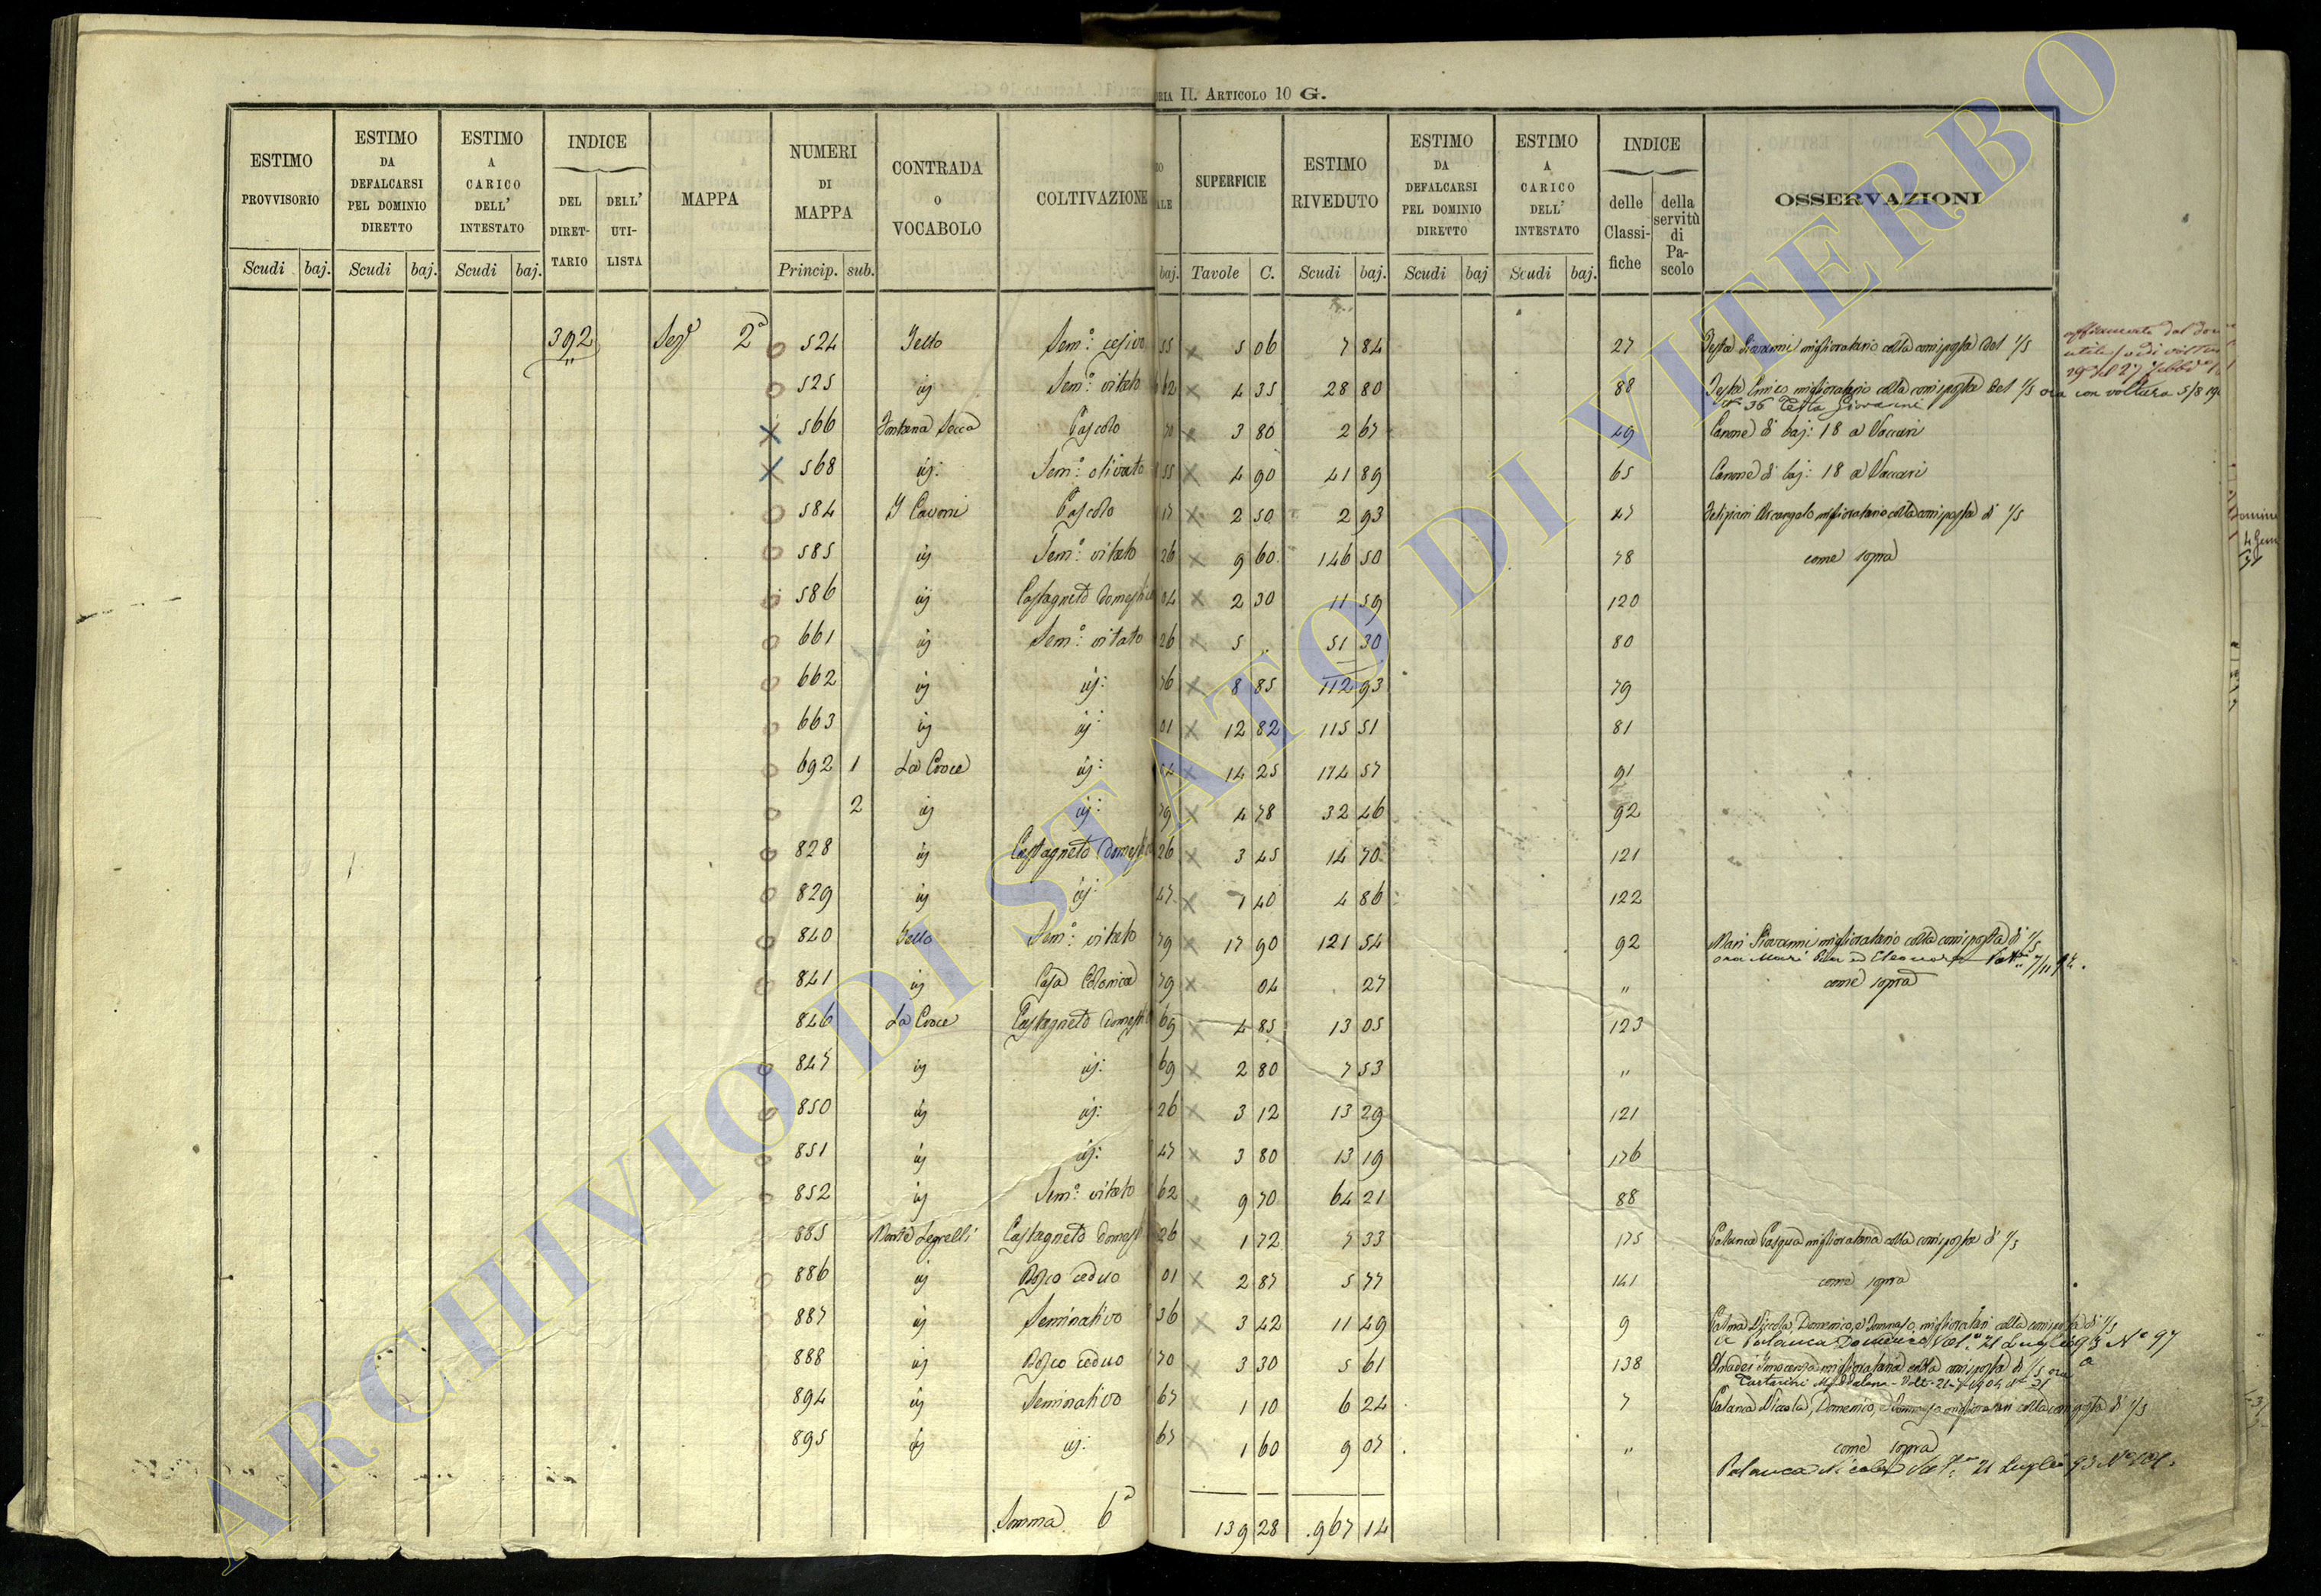 ria II. Articolo 10 G.
ESTIMO PROVVISORIO
ESTIMO DA DEFALCARSI PEL DOMINIO DIRETTO
ESTIMO A CARICO DELL' INTESTATO
INDICE
DEL DIRETTARIO
DELL' UTILISTA
MAPPA
NUMERI DI MAPPA
CONTRADA o VOCABOLO
COLTIVAZIONE
SUPERFICIE
ESTIMO RIVEDUTO
ESTIMO DA DEFALCARSI PEL DOMINIO DIRETTO
ESTIMO A CARICO DELL' INTESTATO
INDICE
delle Classifiche
della servitù di Pascolo
OSSERVAZIONI
Scudi baj. Scudi baj. Scudi baj. Princip. sub. baj. Tavole C. Scudi baj. Scudi baj Scudi baj.
392 Sezᵉ 2ª 524 Sem.º cesivo 55 5 06 7 84 27 Testa Giovanni miglioratario colla corrisposta del 1/5
525 ij Sem.º vitato 62 4 35 28 80 88 Testa miglioratario colla corrisposta del 1/5 ora con voltura 5/8
Nº 36 Testa Giovanni
566 Fontana Secca Pascolo 70 3 80 2 67 49 Canone di baj: 18 a Vaccari
568 ij: Sem.º olivato 55 4 90 41 89 65 Canone di baj: 18 a Vaccari
584 I Cavoni Pascolo 17 2 50 2 93 47 Arcangelo miglioratario colla corrisposta di 1/5
585 ij Sem.º vitato 26 9 60 146 50 78 come sopra
586 ij Castagneto domestico 04 2 30 11 59 120
661 ij Sem.º vitato 26 5 .. 51 30 80
662 ij ij: 76 8 85 112 93 79
663 ij ij: 01 12 82 115 51 81
692 1 La Croce ij: 54 14 25 174 57 91
2 ij ij: 79 4 78 32 46 92
828 ij Castagneto domest 26 3 45 14 70 121
829 ij ij: 47 1 40 4 86 122
840 Sem.º vitato 79 17 90 121 54 92 Mari Giovanni miglioratario colla corrisposta di 1/5
ora Mari ed Eleonora
841 ij Casa Colonica 79 04 27 " come sopra
846 La Croce Castagneto domest 69 4 85 13 05 123
847 ij ij: 69 2 80 7 53 "
850 ij ij: 26 3 12 13 29 121
851 ij ij: 47 3 80 13 19 176
852 ij Sem.º vitato 62 9 70 64 21 88
885 Castagneto domest 26 1 72 7 33 175 Palanca Pasqua migliorataria colla corrisposta di 1/5
886 ij Bosco ceduo 01 2 87 5 77 141 come sopra
887 ij Seminativo 36 3 42 11 49 9 Nicola, Domenico, e Tommaso, miglioratari colla corrisposta di 1/5
a Palanca Domenico Volt.ª 21 Luglio 93 Nº 97
888 ij Bosco ceduo 70 3 30 5 61 138 Amadei Innocenza migliorataria colla corrisposta di 1/5 ora
Maddalena - Volt. 1904
894 ij Seminativo 67 1 10 6 24 7 Palanca Nicola, Domenico, e Tommaso miglioratari colla corrisposta di 1/5
895 ij ij: 67 1 60 9 07 " come sopra
Palanca Nicola Volt.ª 21 Luglio 93
Somma 6ª 139 28 967 14
ARCHIVIO DI STATO DI VITERBO